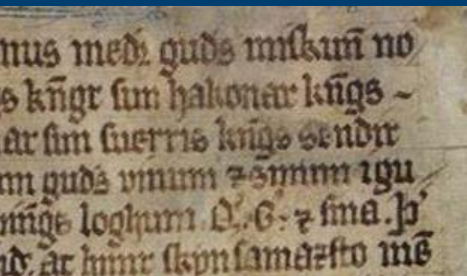 nus medꝛ guds miſkun̄ no
s kn̄gr ſun hakonar kn̄gs ~
ar ſun ſuerris kn̄gs sendir
um guds vinum ⁊ sinum i gu
loghum. Q. G. ⁊ ſina. þ͛
at hinir ſkynſamaꝛſto me̅